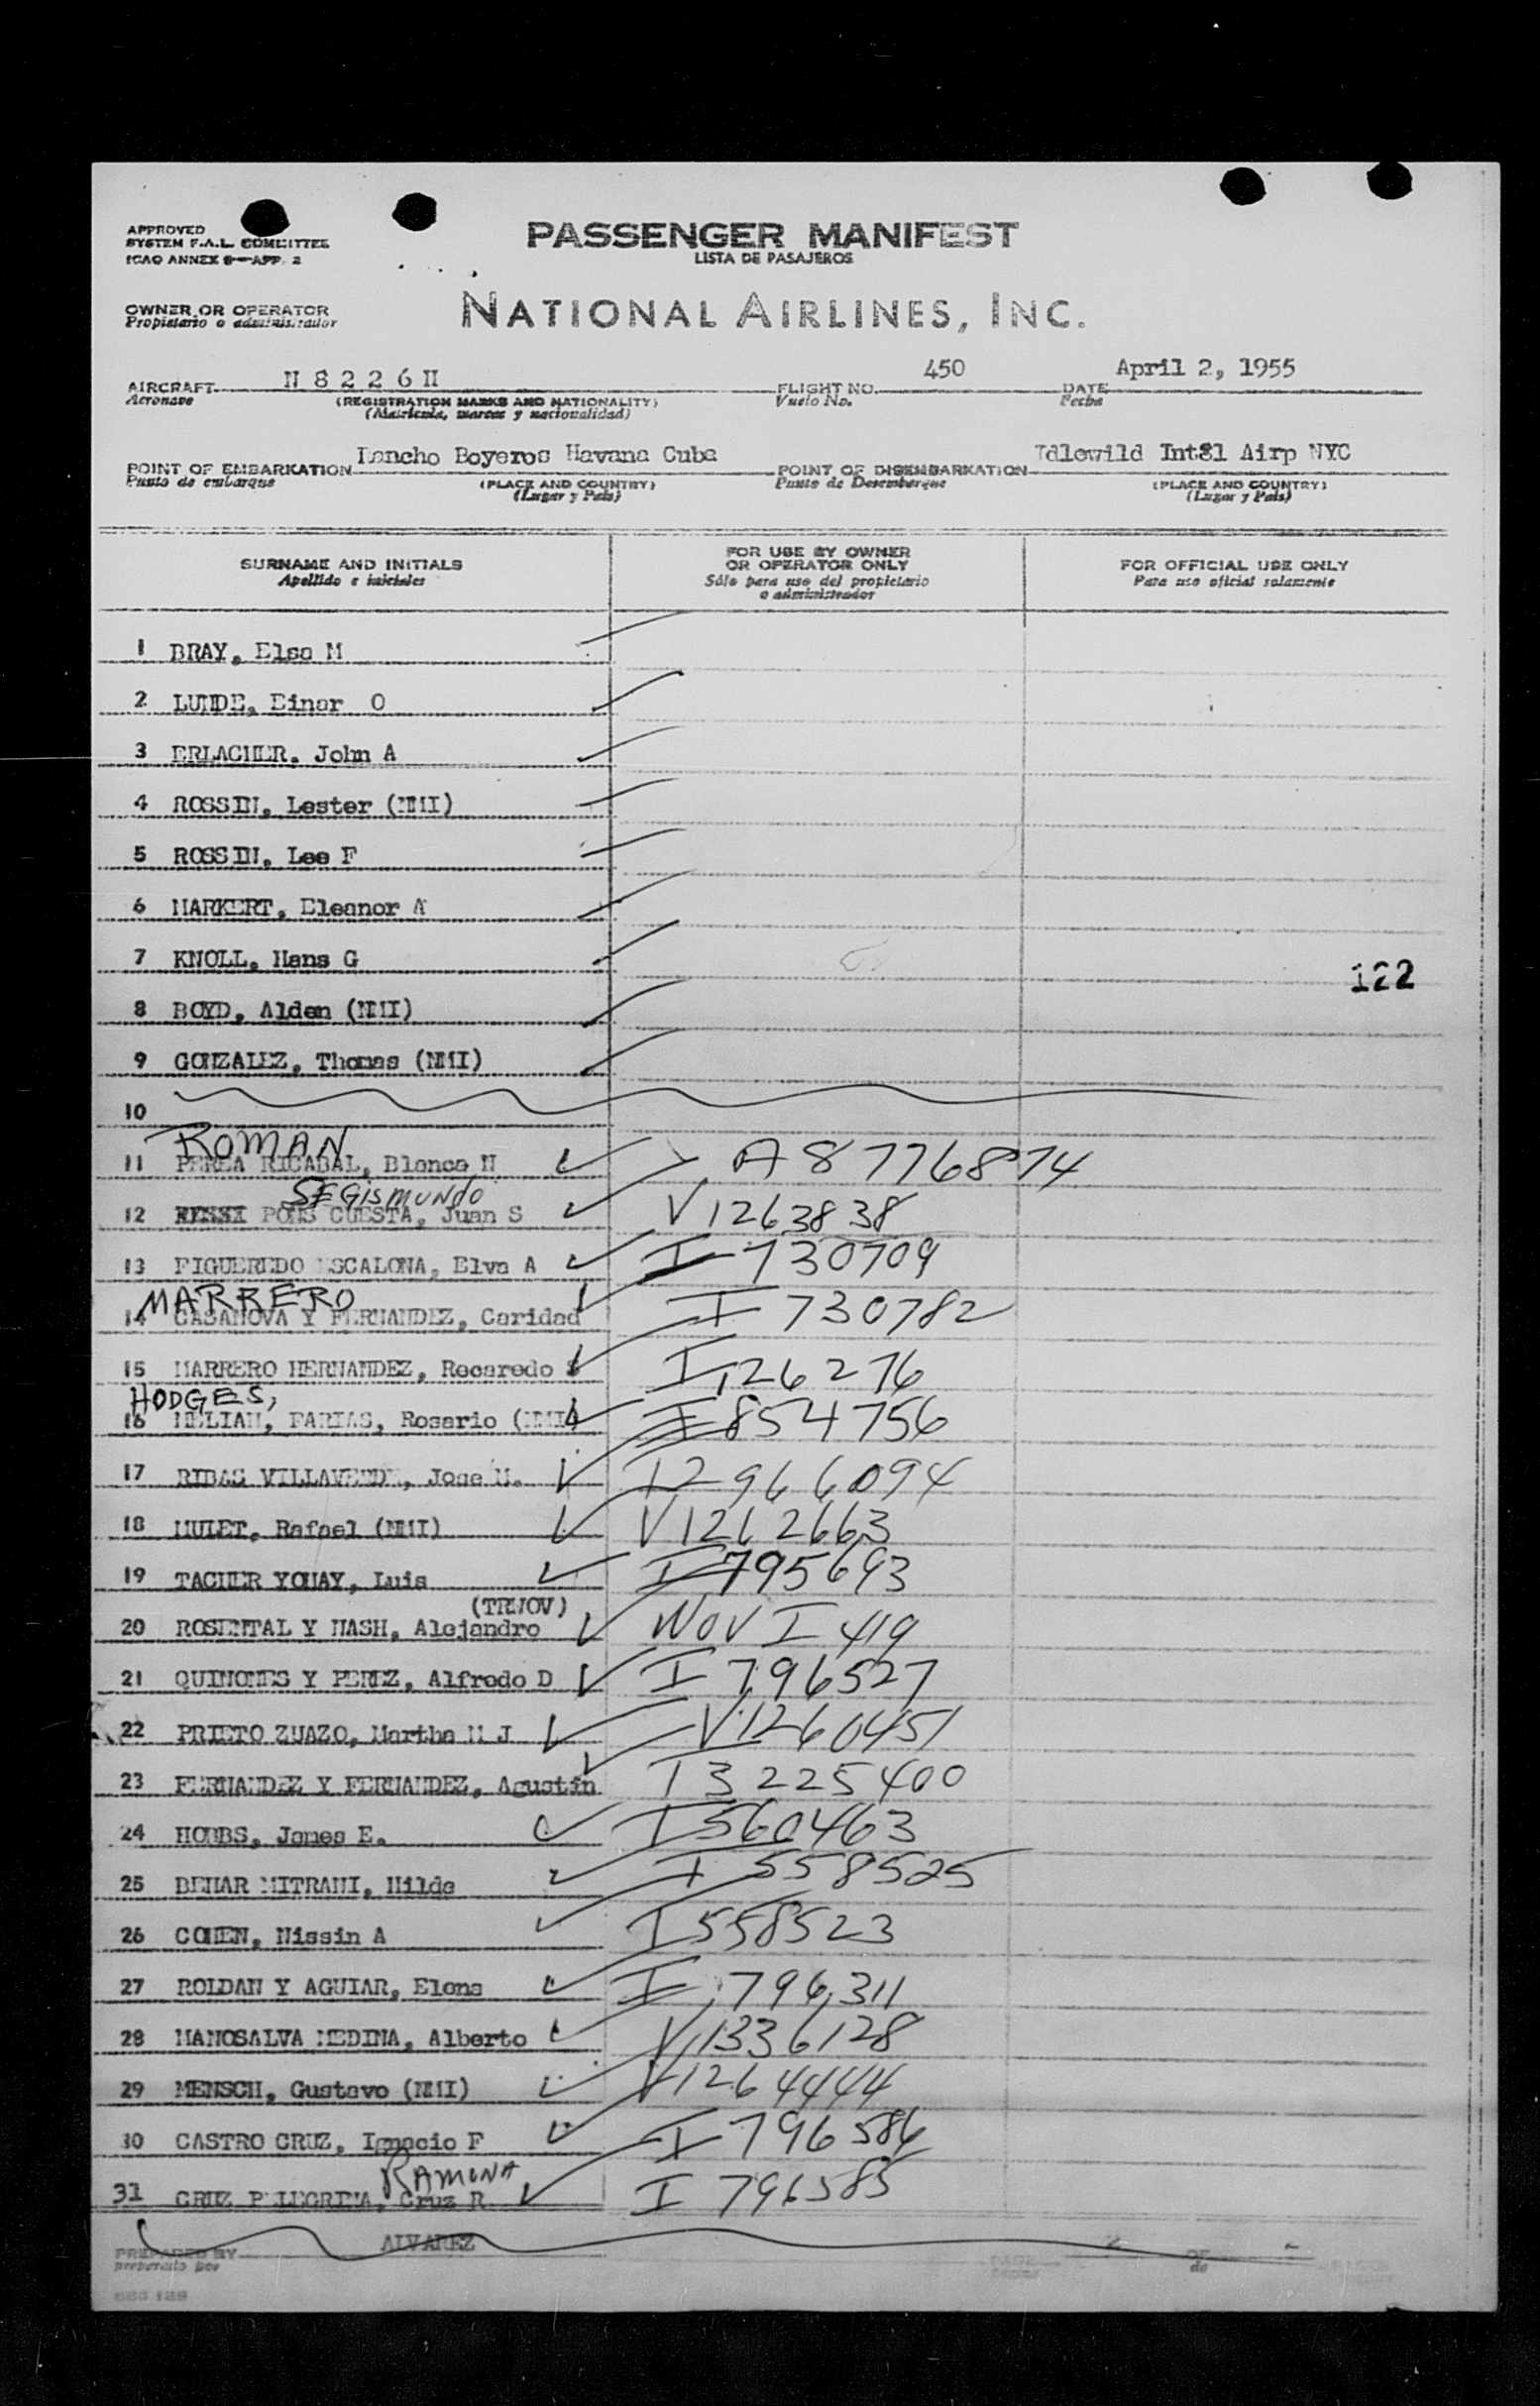 APPROVED
SYSTEM F.A.L. COMMITTEE
ICAO ANNEX 9—APP. 2
PASSENGER MANIFEST
LISTA DE PASAJEROS
OWNER OR OPERATOR
Propietario o administrador
NATIONAL AIRLINES, INC.
AIRCRAFT N 8 2 2 6 H FLIGHT NO. 450 DATE April 2, 1955
Aeronave (REGISTRATION MARKS AND NATIONALITY) Vuelo No. Fecha
(Matricula, marcas y nacionalidad)
POINT OF EMBARKATION Rancho Boyeros Havana Cuba POINT OF DISEMBARKATION Idlewild Int8l Airp NYC
Punto de embarque (PLACE AND COUNTRY) Punto de Desembarque (PLACE AND COUNTRY)
(Lugar y País) (Lugar y País)
SURNAME AND INITIALS FOR USE BY OWNER OR OPERATOR ONLY FOR OFFICIAL USE ONLY
Apellido e iniciales Sólo para uso del propietario o administrador Para uso oficial solamente
1 BRAY, Elsa M
2 LUNDE, Einar O
3 ERLACHER, John A
4 ROSSIN, Lester (NMI)
5 ROSSIN, Lee F
6 MARKERT, Eleanor A
7 KNOLL, Hans G
122
8 BOYD, Alden (NMI)
9 GONZALEZ, Thomas (NMI)
10
ROMAN
11 PEREA RICABAL, Blanca N A8776874
SEGISMUNDO
12 PONS CUESTA, Juan S V1263838
13 FIGUEREDO ESCALONA, Elva A I 730709
MARRERO
14 CASANOVA Y FERNANDEZ, Caridad I 730782
15 MARRERO HERNANDEZ, Recaredo I 126276
HODGES,
16 MELIAN, FARIAS, Rosario (NMI) I 854756
17 RIBAS VILLAVERDE, Jose M. I2966094
18 MULET, Rafael (NMI) V1262663
19 TACHER YOHAY, Luis I 795693
(TRWOV)
20 ROSENTAL Y NASH, Alejandro WOV I 419
21 QUINONES Y PEREZ, Alfredo D I 796527
22 PRIETO ZUAZO, Martha M J V1260451
23 FERNANDEZ Y FERNANDEZ, Agustin I3225400
24 HOBBS, James E. I560463
25 BEHAR MITRANI, Hilda I 558525
26 COHEN, Nissin A I558523
27 ROLDAN Y AGUIAR, Elena I 796311
28 MANOSALVA MEDINA, Alberto V1336128
29 MENSCH, Gustavo (NMI) V1264444
30 CASTRO CRUZ, Ignacio F I 796586
RAMONA
31 CRUZ PELEGRINA, Cruz R I 796585
PREPARED BY ALVAREZ PAGE OF
preparado por de